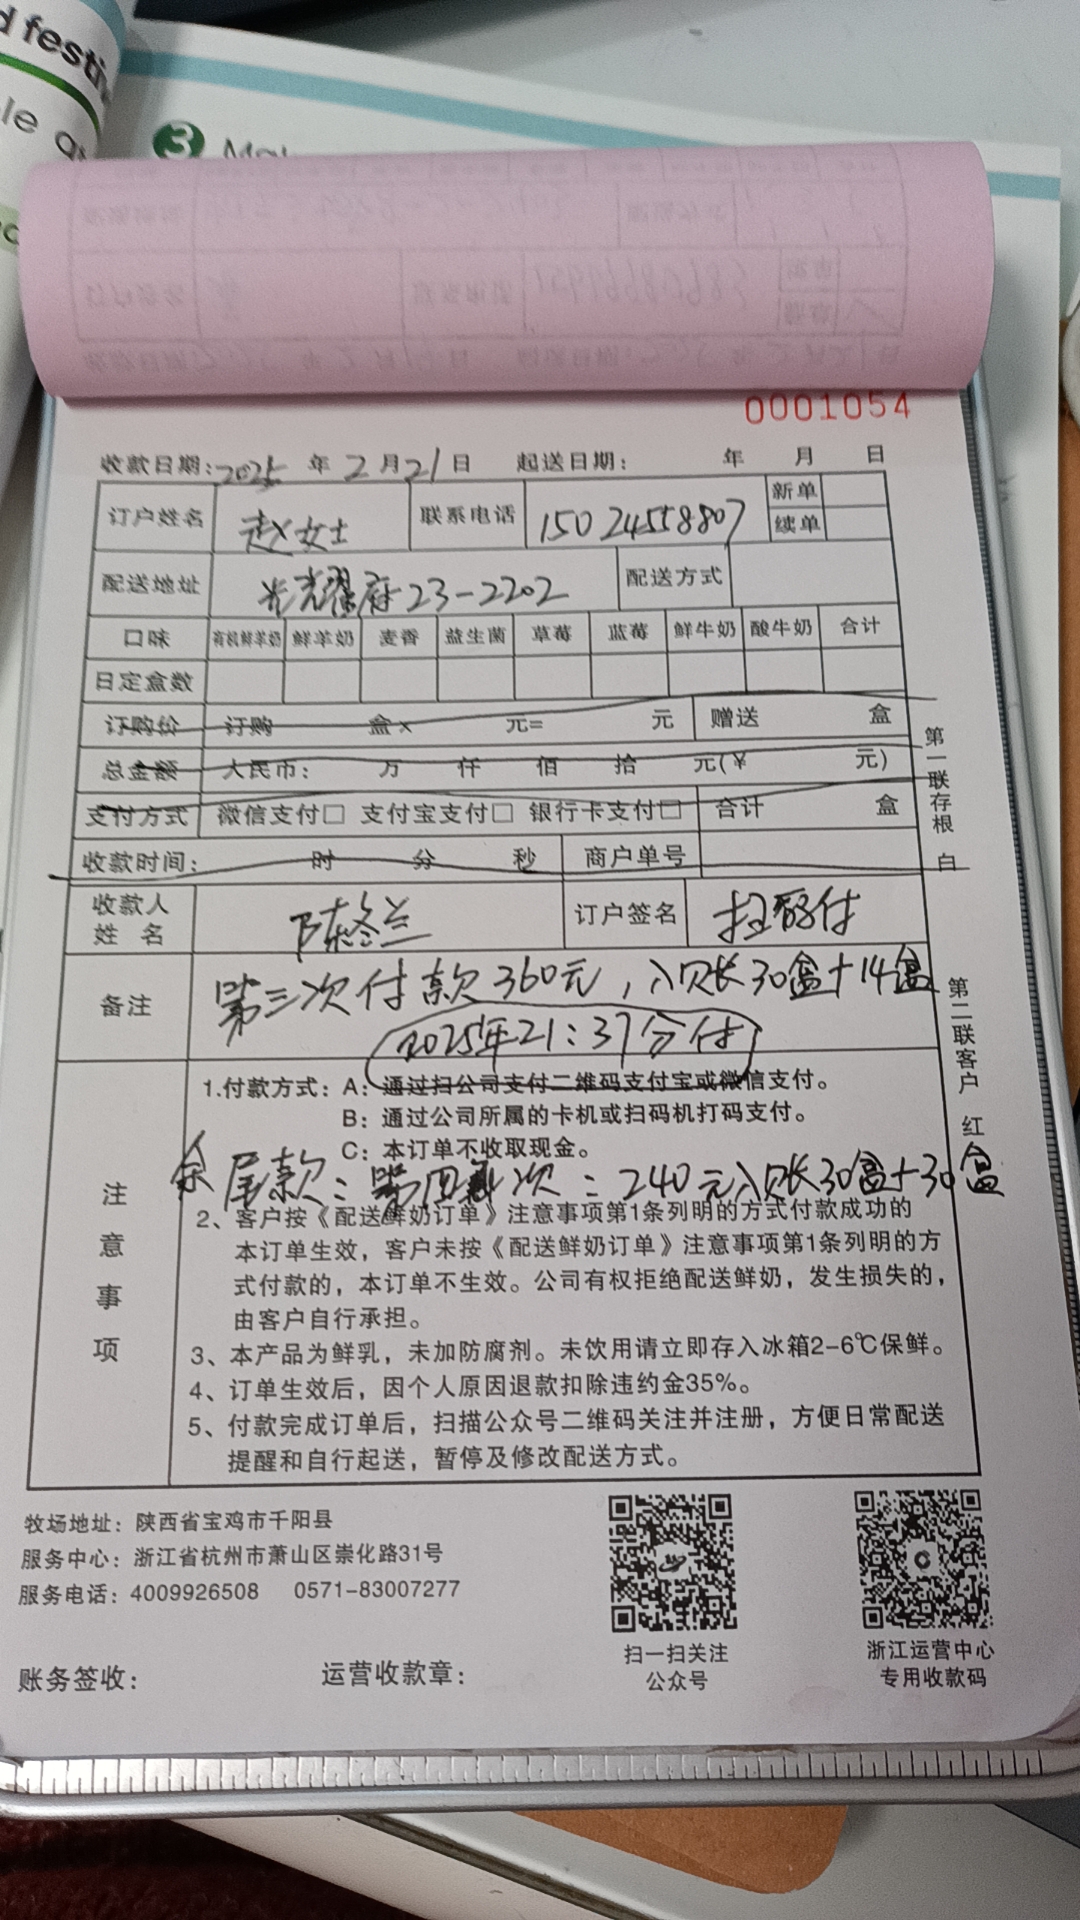 d festi
le q
3 Ma
0001054
收款日期：2025 年 2 月 21 日 起送日期： 年 月 日
订户姓名 赵女士 联系电话 15024558807 新单
续单
配送地址 光耀府23-2202 配送方式
口味 有机鲜羊奶 鲜羊奶 麦香 益生菌 草莓 蓝莓 鲜牛奶 酸牛奶 合计
日定盒数
订购价 订购 盒× 元= 元 赠送 盒
总金额 人民币： 万 仟 佰 拾 元(￥ 元)
支付方式 微信支付□ 支付宝支付□ 银行卡支付□ 合计 盒
收款时间： 时 分 秒 商户单号
收款人
姓 名 陈 兰 订户签名 扫码付
备注 第三次付款360元，入账长30盒+14盒
2025年21:37分付
第一联存根 白
第二联客户 红
注意事项
1.付款方式：A：通过扫公司支付二维码支付宝或微信支付。
B：通过公司所属的卡机或扫码机打码支付。
C：本订单不收取现金。
余尾款：第四 次：240元入账30盒+30盒
2、客户按《配送鲜奶订单》注意事项第1条列明的方式付款成功的
本订单生效，客户未按《配送鲜奶订单》注意事项第1条列明的方
式付款的，本订单不生效。公司有权拒绝配送鲜奶，发生损失的，
由客户自行承担。
3、本产品为鲜乳，未加防腐剂。未饮用请立即存入冰箱2-6℃保鲜。
4、订单生效后，因个人原因退款扣除违约金35%。
5、付款完成订单后，扫描公众号二维码关注并注册，方便日常配送
提醒和自行起送，暂停及修改配送方式。
牧场地址：陕西省宝鸡市千阳县
服务中心：浙江省杭州市萧山区崇化路31号
服务电话：4009926508 0571-83007277
扫一扫关注
公众号
浙江运营中心
专用收款码
账务签收： 运营收款章：